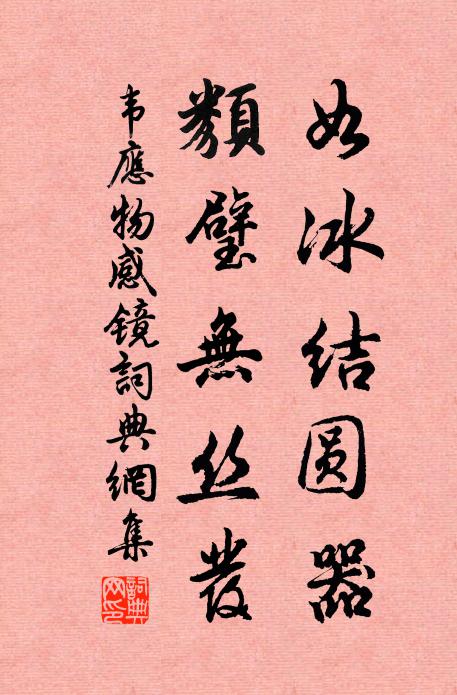 如冰結圆器
類璧無丝發
韦應物感镜詞典網集
詞典網印